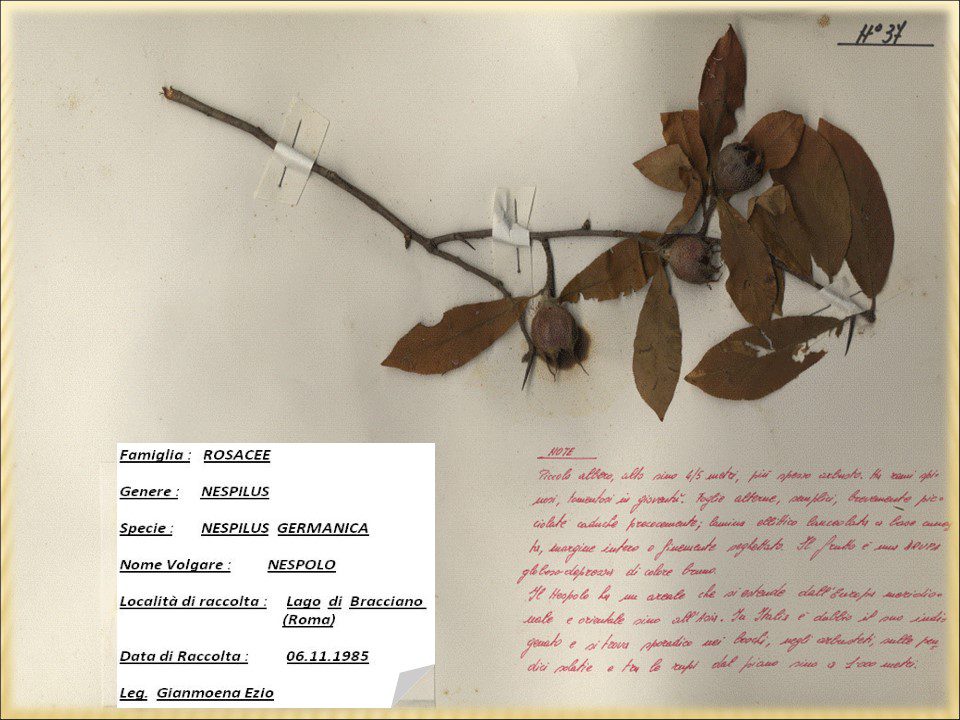 N° 37
Famiglia : ROSACEE
Genere : NESPILUS
Specie : NESPILUS GERMANICA
Nome Volgare : NESPOLO
Località di raccolta : Lago di Bracciano
(Roma)
Data di Raccolta : 06.11.1985
Leg. Gianmoena Ezio
NOTE
Piccolo albero, alto sino 4/5 metri, più spesso arbusto. Ha rami spi-
nosi, tomentosi in gioventù. Foglie alterne, semplici, brevemente pic-
ciolate caduche precocemente; lamina ellittico lanceolata a base cunea
ta, margine intero o finemente seghettato. Il frutto è una
globoso-depressa di colore bruno.
Il Nespolo ha un areale che si estende dall'Europa meridio-
nale e orientale sino all'Asia. In Italia è dubbio il suo indi
genato e si trova sporadico nei boschi, negli arbusteti, sulle pen
dici solatie e tra le rupi dal piano sino a 1.000 metri.